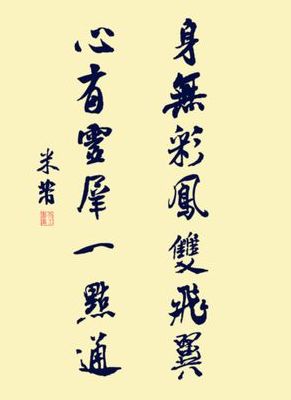 身無彩鳳雙飛翼
心有靈犀一點通
米芾